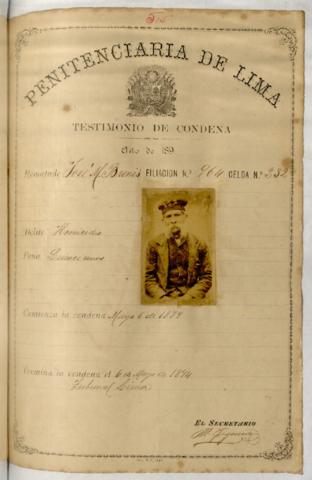 PENITENCIARIA DE LIMA
TESTIMONIO DE CONDENA
Año de 189
Rematado José M. FILIACION N.° 864 CELDA N.° 232
Delito Homicidio
Pena Quince años
Comienza la condena Mayo 6 de 1879
Termina la condena el 6 de Mayo de 1894
Tribunal Lima
EL SECRETARIO